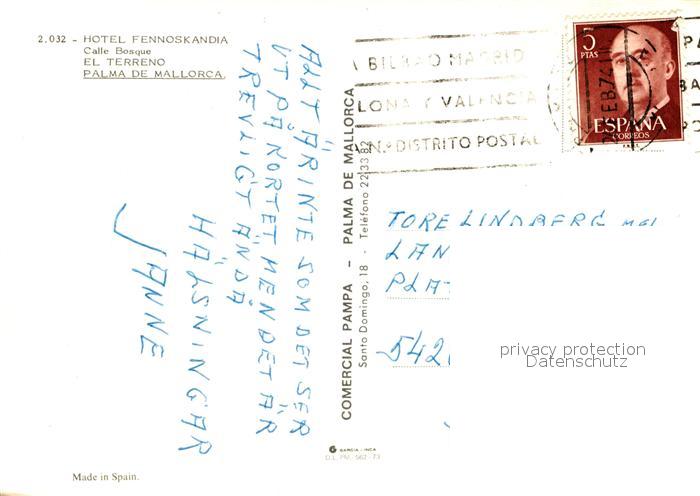 2.032 - HOTEL FENNOSKANDIA
Calle Bosque
EL TERRENO
PALMA DE MALLORCA.
ALLT ÄR INTE SOM DET SER
UT PÅ KORTET MEN DET ÄR
TREVLIGT ÄNDÅ
HÄLSNINGAR
JANNE
COMERCIAL PAMPA - PALMA DE MALLORCA
Santo Domingo, 18 - Teléfono 22 33 82
A BILBAO MADRID
LONA Y VALENCIA
A N.º DISTRITO POSTAL
5
PTAS
ESPAÑA
CORREOS
TORE LINDBERG
LAN
PLA
542
privacy protection
Datenschutz
GARCIA - INCA
D.L. PM. 562-73
Made in Spain.